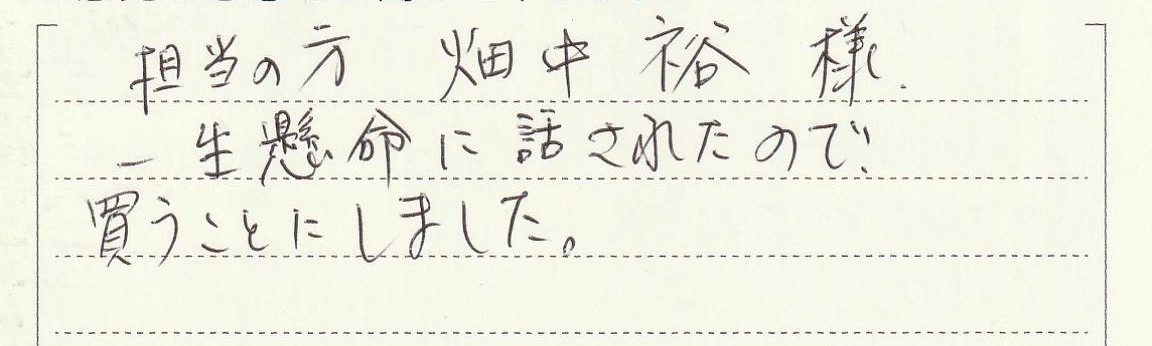 担当の方 畑中 裕 様.
一生懸命に話されたので、
買うことにしました。